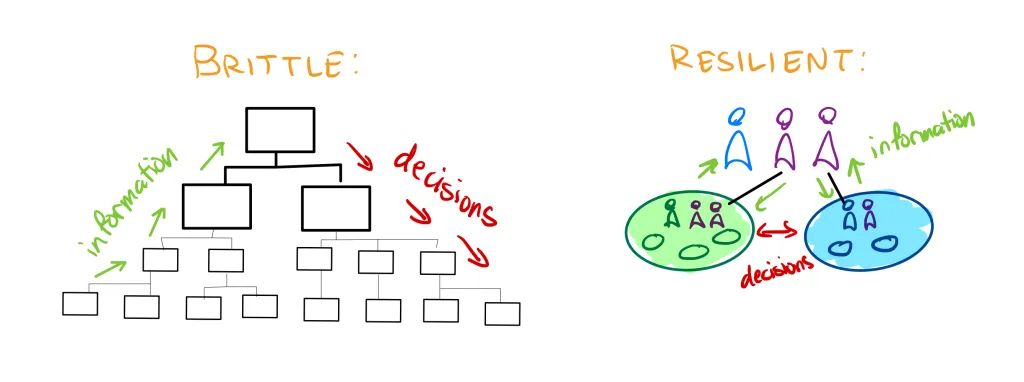 BRITTLE:
information
decisions
RESILIENT:
information
decisions